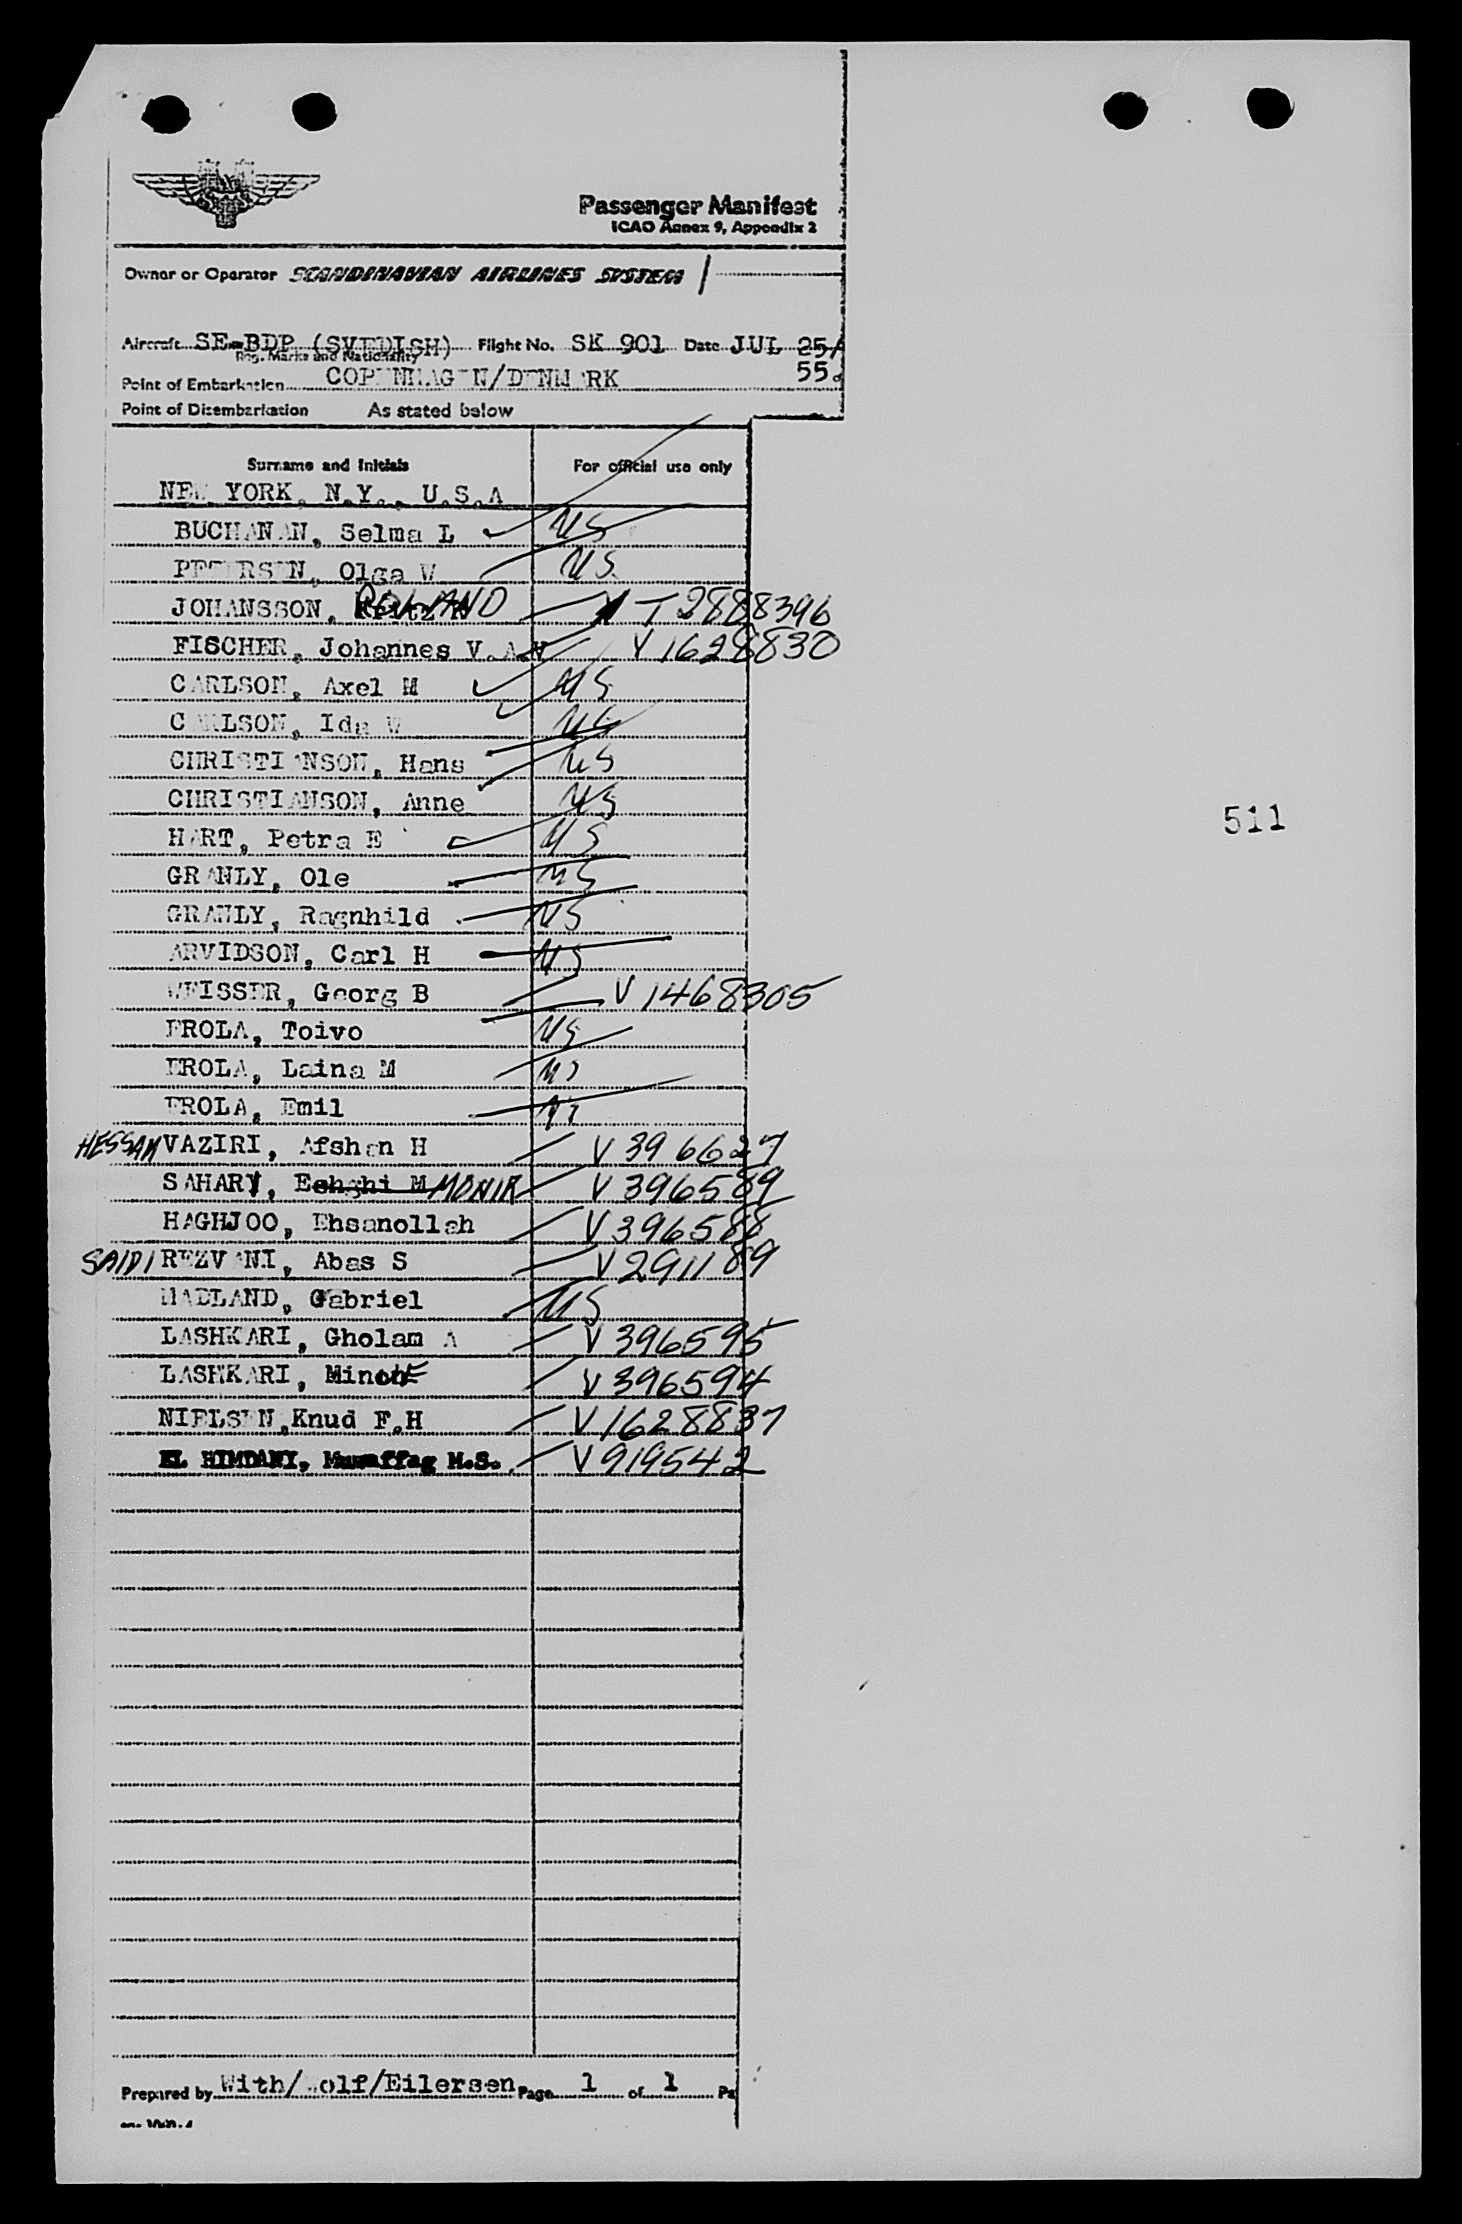 Passenger Manifest
ICAO Annex 9, Appendix 2
Owner or Operator SCANDINAVIAN AIRLINES SYSTEM
Aircraft SE-BDP (SWEDISH) Flight No. SK 901 Date JUL 25/
Reg. Marks and Nationality
55.
Point of Embarkation COPENHAGEN/DENMARK
Point of Disembarkation As stated below
Surname and Initials For official use only
NEW YORK, N.Y., U.S.A
BUCHANAN, Selma L US
PETERSEN, Olga W US
JOHANSSON, ROLAND T 2888396
FISCHER, Johannes V.A.W V 1628830
CARLSON, Axel M US
CARLSON, Ida W US
CHRISTIANSON, Hans US
CHRISTIANSON, Anne US
HART, Petra E US
GRANLY, Ole US
GRANLY, Ragnhild US
ARVIDSON, Carl H US
WEISSER, Georg B V 1468305
EROLA, Toivo US
EROLA, Laina M US
EROLA, Emil
HESSAM VAZIRI, Afshan H V 396627
SAHARY, Eshghi M MONIR V 396589
HAGHJOO, Ehsanollah V 396588
SAIDI REZVANI, Abas S V 291189
HADLAND, Gabriel US
LASHKARI, Gholam A V 396595
LASHKARI, Minoo V 396594
NIELSEN, Knud F.H V 1628837
EL HIMDANY, Muwaffag M.S. V 919542
511
Prepared by With/Wolf/Eilersen Page 1 of 1 Pa